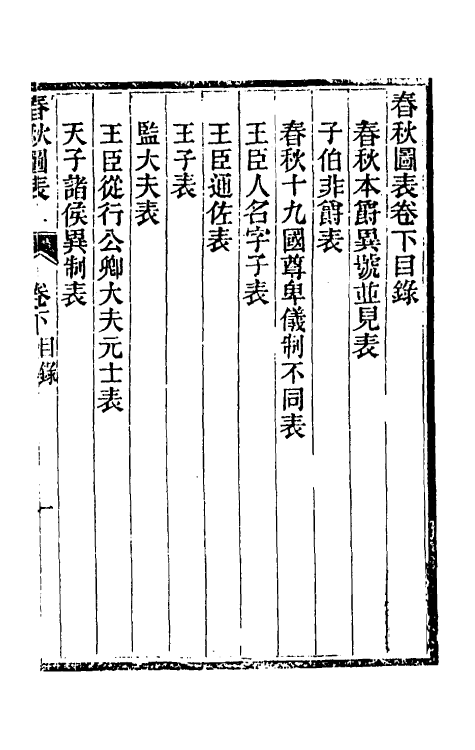 春秋圖表卷下目錄
春秋本爵異號並見表
子伯非爵表
春秋十九國尊卑儀制不同表
王臣人名字子表
王臣通佐表
王子表
監大夫表
王臣從行公卿大夫元士表
天子諸侯異制表
春秋圖表 卷下目錄 一